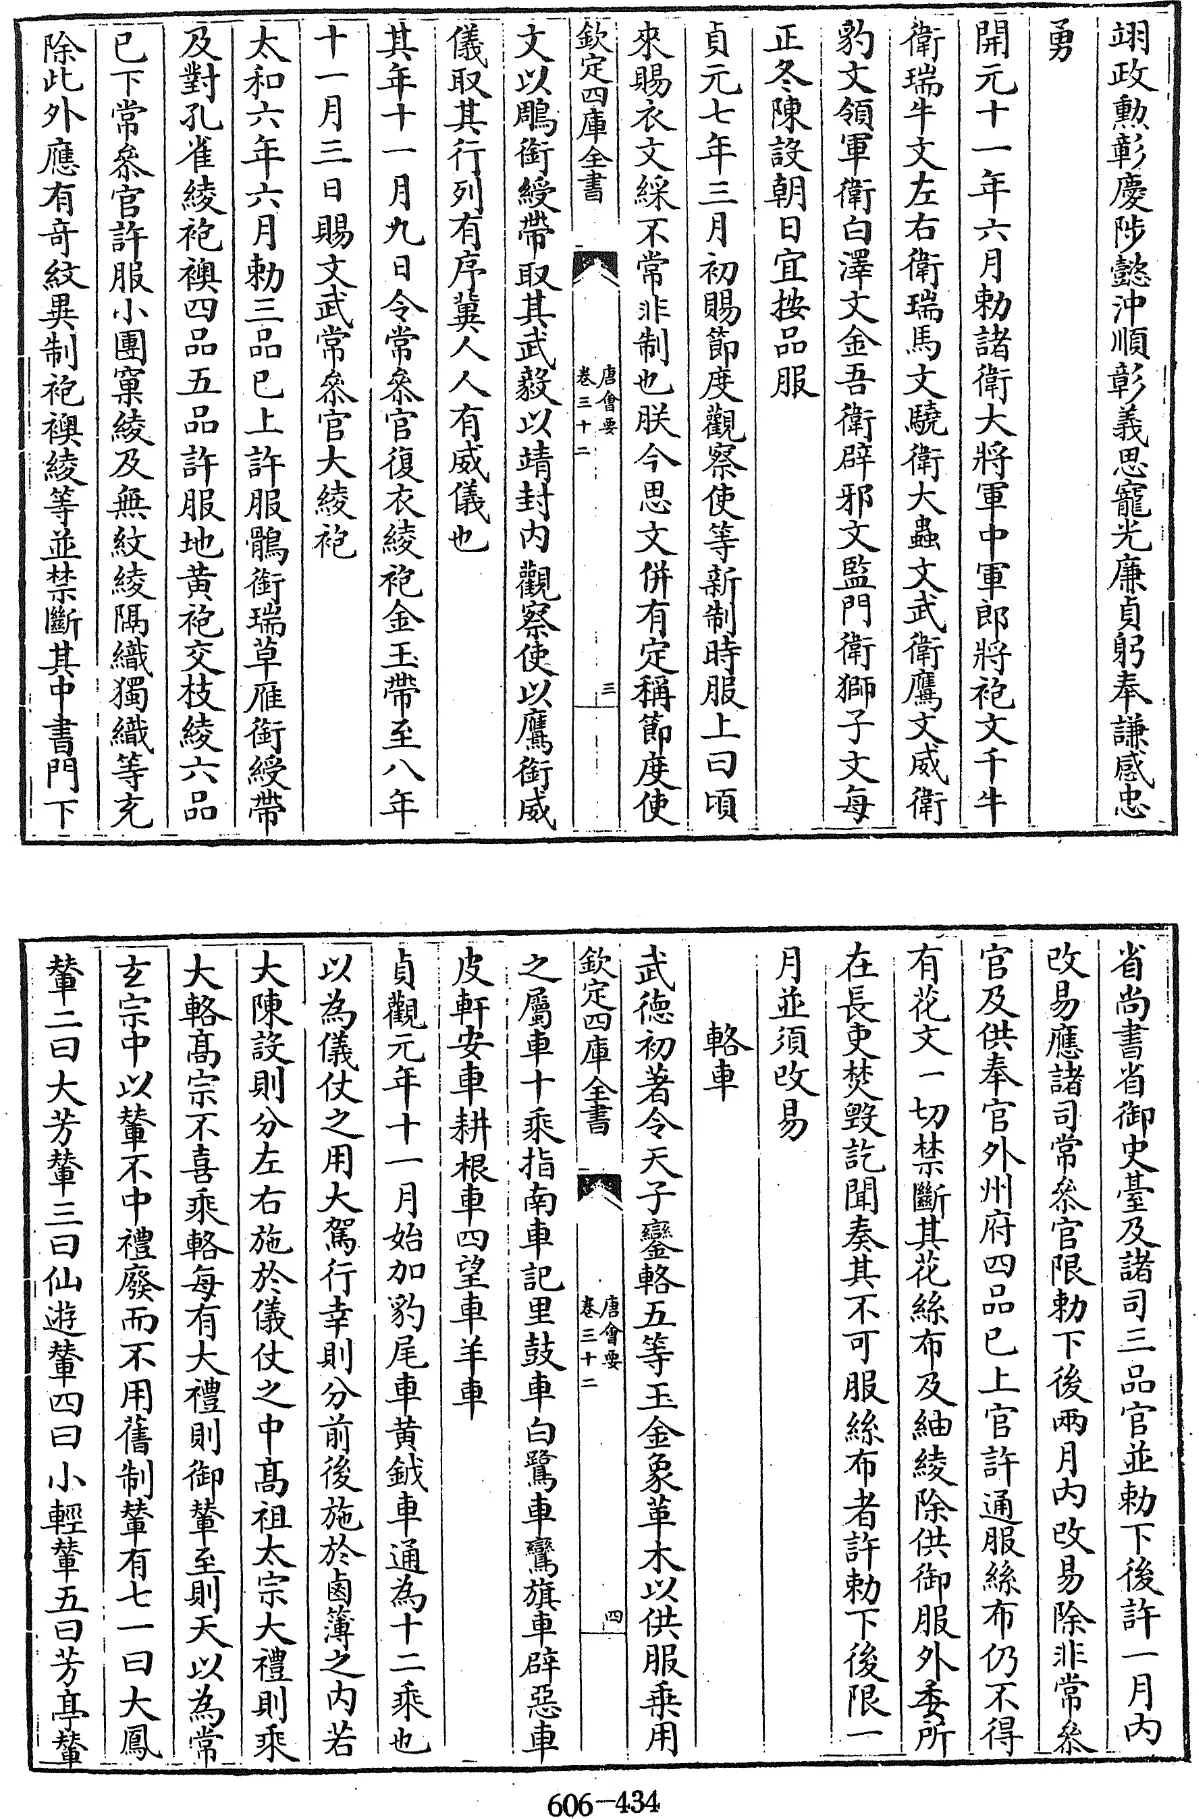 翊政勲彰慶陟懿沖順彰義思寵光廉貞躬奉謙感忠
勇
開元十一年六月勅諸衛大將軍中軍郎將袍文千牛
衛瑞牛文左右衛瑞馬文驍衛大蟲文武衛鷹文威衛
豹文領軍衛白澤文金吾衛辟邪文監門衛獅子文每
正冬陳設朝日宜按品服
貞元七年三月初賜節度觀察使等新制時服上曰頃
來賜衣文綵不常非制也朕今思文併有定稱節度使
欽定四庫全書
唐會要
卷三十二
三
文以鵰銜綬帶取其武毅以靖封内觀察使以鷹銜威
儀取其行列有序冀人人有威儀也
其年十一月九日令常叅官復衣綾袍金玉帶至八年
十一月三日賜文武常叅官大綾袍
太和六年六月勅三品已上許服鶻銜瑞草雁銜綬帶
及對孔雀綾袍襖四品五品許服地黄袍交枝綾六品
已下常叅官許服小團窠綾及無紋綾隔織獨織等充
除此外應有奇紋異制袍襖綾等並禁斷其中書門下
省尚書省御史臺及諸司三品官並勅下後許一月内
改易應諸司常叅官限勅下後兩月内改易除非常叅
官及供奉官外州府四品已上官許通服絲布仍不得
有花文一切禁斷其花絲布及紬綾除供御服外委所
在長吏焚毀訖聞奏其不可服絲布者許勅下後限一
月並須改易
輅車
武德初著令天子鑾輅五等玉金象革木以供服乗用
欽定四庫全書
唐會要
卷三十二
四
之屬車十乘指南車記里鼓車白鷺車鸞旗車辟惡車
皮軒安車耕根車四望車羊車
貞觀元年十一月始加豹尾車黄鉞車通為十二乘也
以為儀仗之用大駕行幸則分前後施於鹵簿之内若
大陳設則分左右施於儀仗之中髙祖太宗大禮則乘
大輅髙宗不喜乘輅每有大禮則御輦至則天以為常
玄宗中以輦不中禮廢而不用舊制輦有七一曰大鳳
輦二曰大芳輦三曰仙遊輦四曰小輕輦五曰芳亭輦
606-434